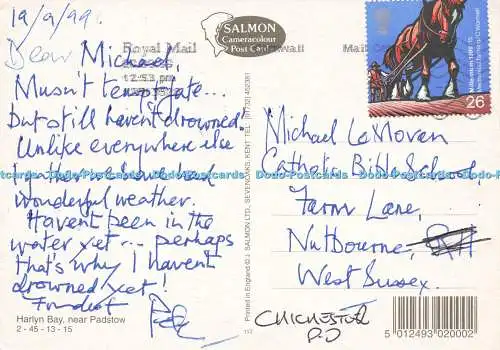 19/9/99.
Dear Michael,
Mustn't tempt fate...
but still haven't drowned!
Unlike everywhere else
I gather we have had
wonderful weather.
Haven't been in the
water yet... perhaps
that's why I haven't
drowned yet!
Fondest
Harlyn Bay, near Padstow
2 - 45 - 13 - 15
SALMON
Cameracolour
Post Card
Royal Mail
12:53 pm
Printed in England © J. SALMON LTD., SEVENOAKS, KENT. TEL. (01732) 452381
26
Michael LaMoven
Catholic Bible School,
Farm Lane,
Nutbourne,
West Sussex.
CHICHESTER
P.O
5 012493 020002
Dodo-Postcards Dodo-Postcards Dodo-Postcards